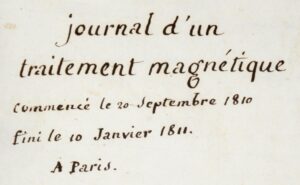 journal d'un
traitement magnétique
commencé le 20 Septembre 1810
fini le 10 Janvier 1811.
A Paris.